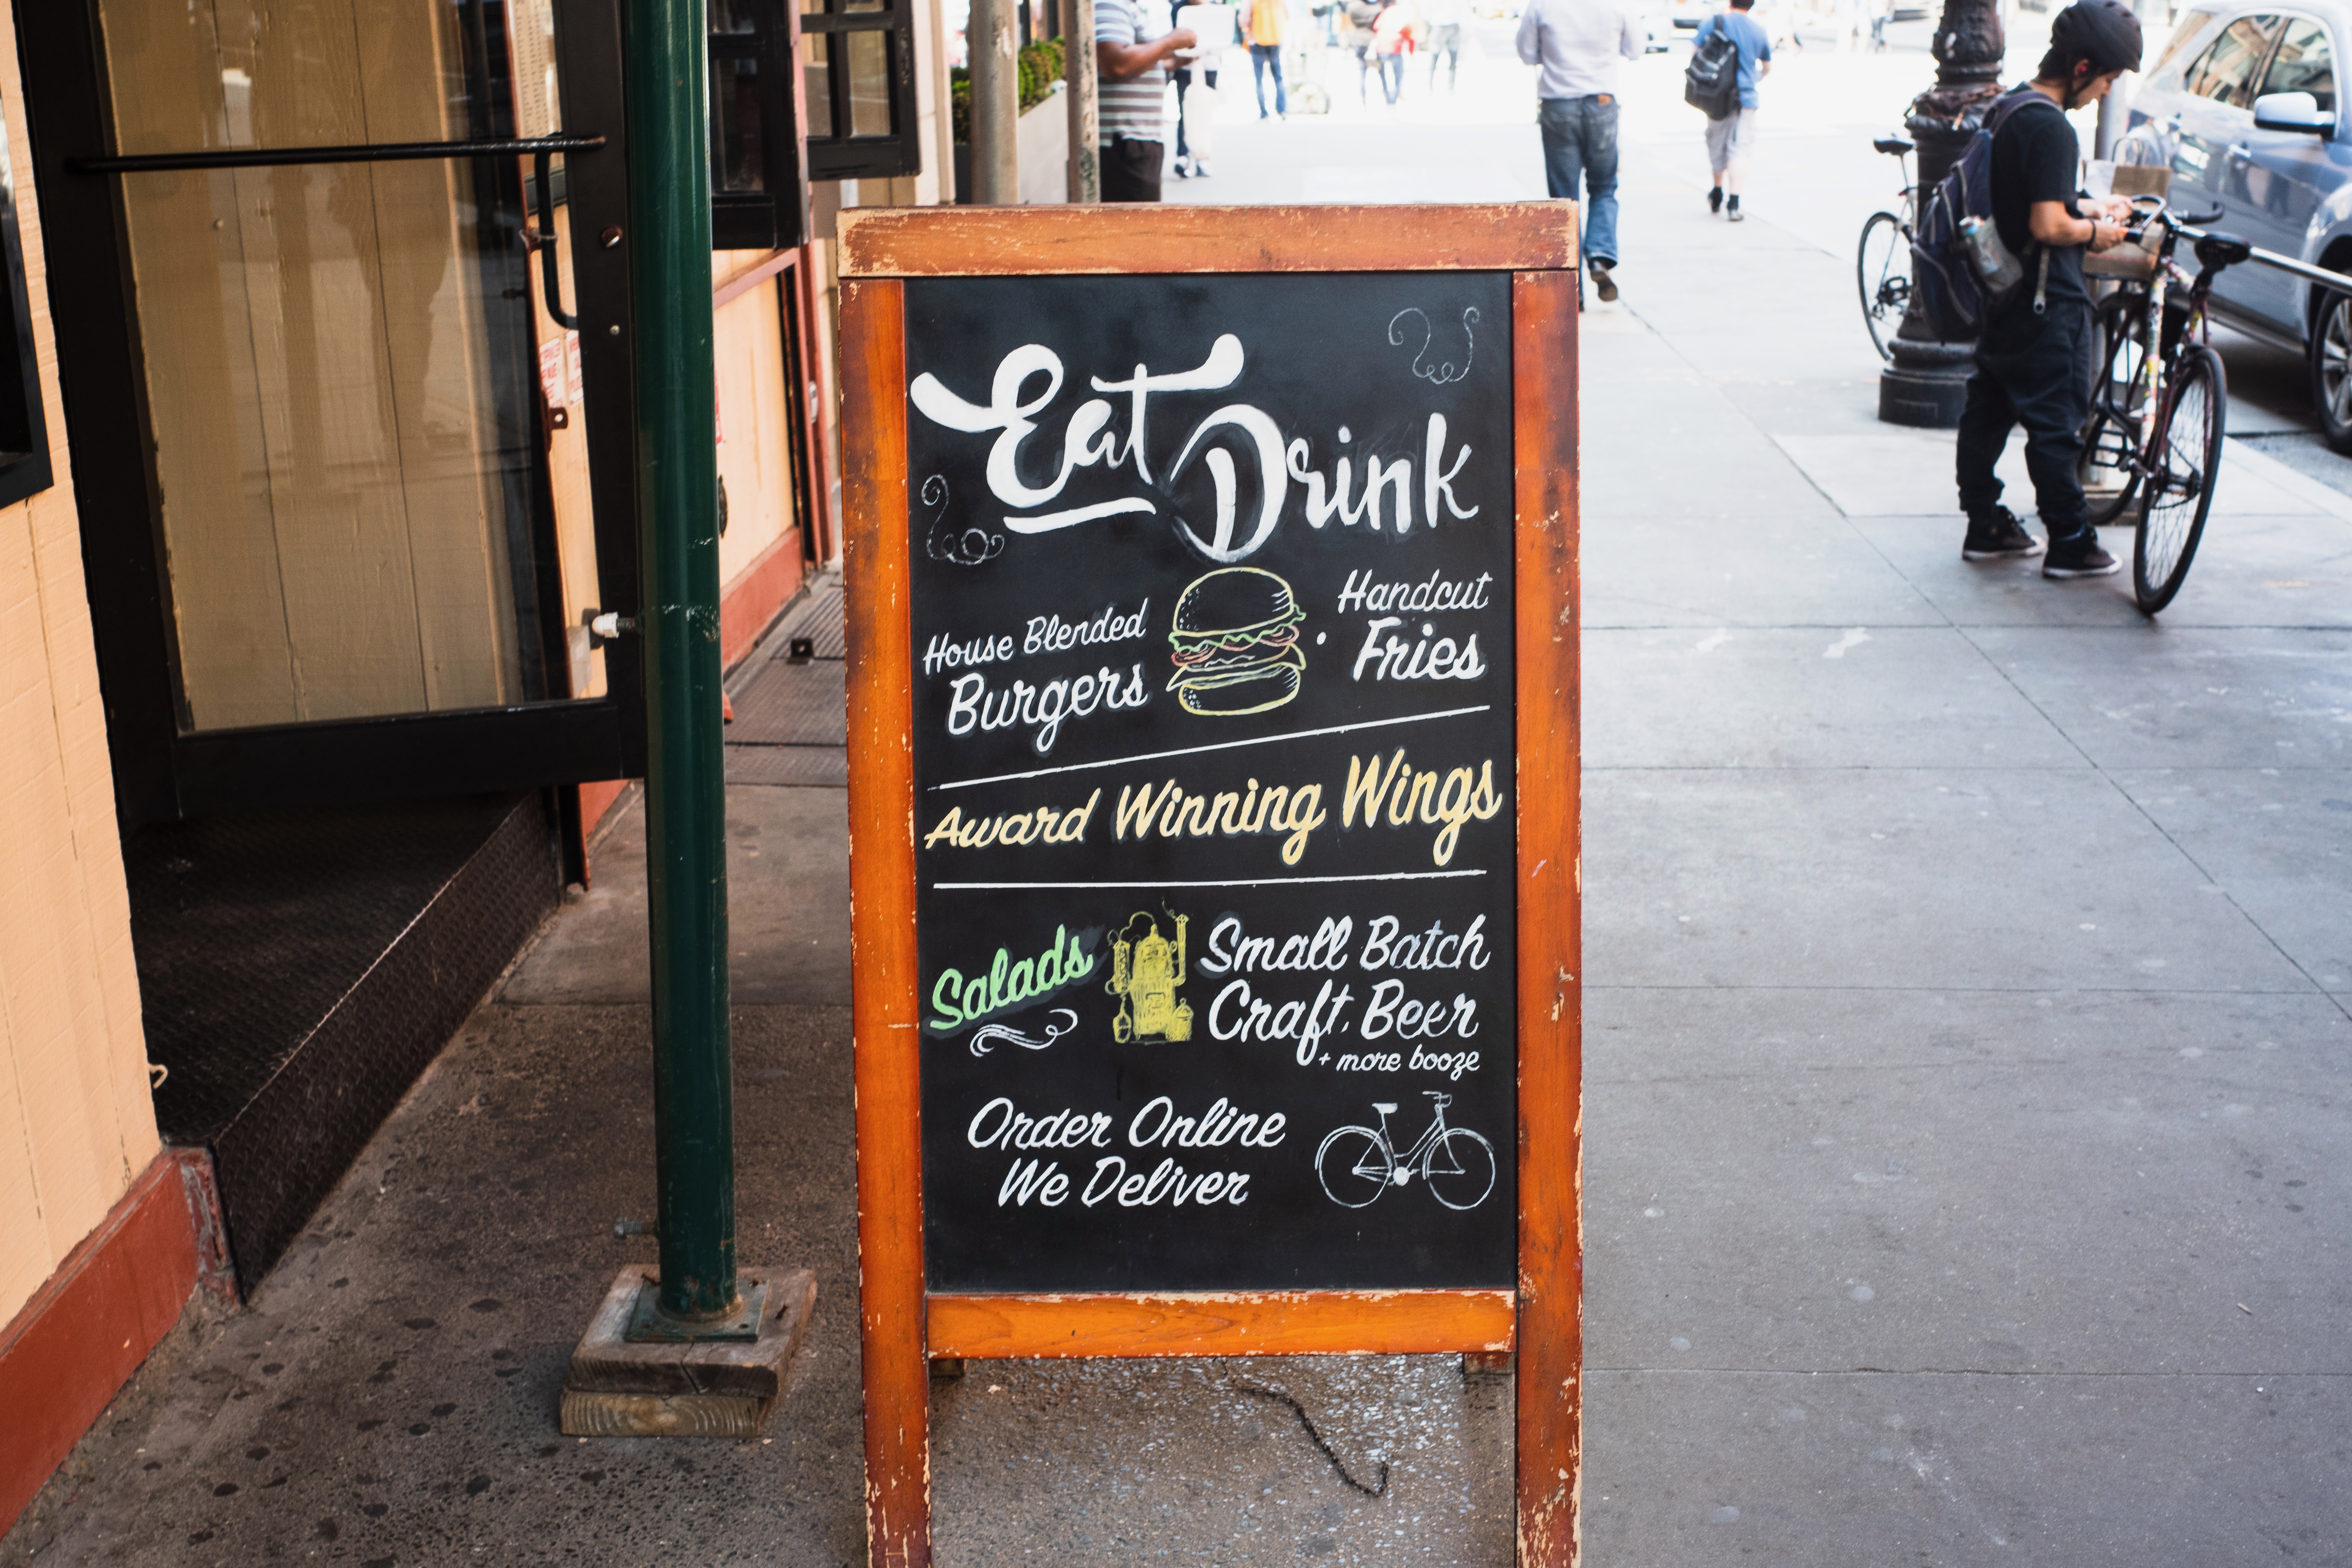 Eat
Drink
House Blended
Burgers
Handcut
Fries
Award Winning Wings
Salads
Small Batch
Craft Beer
+ more booze
Order Online
We Deliver